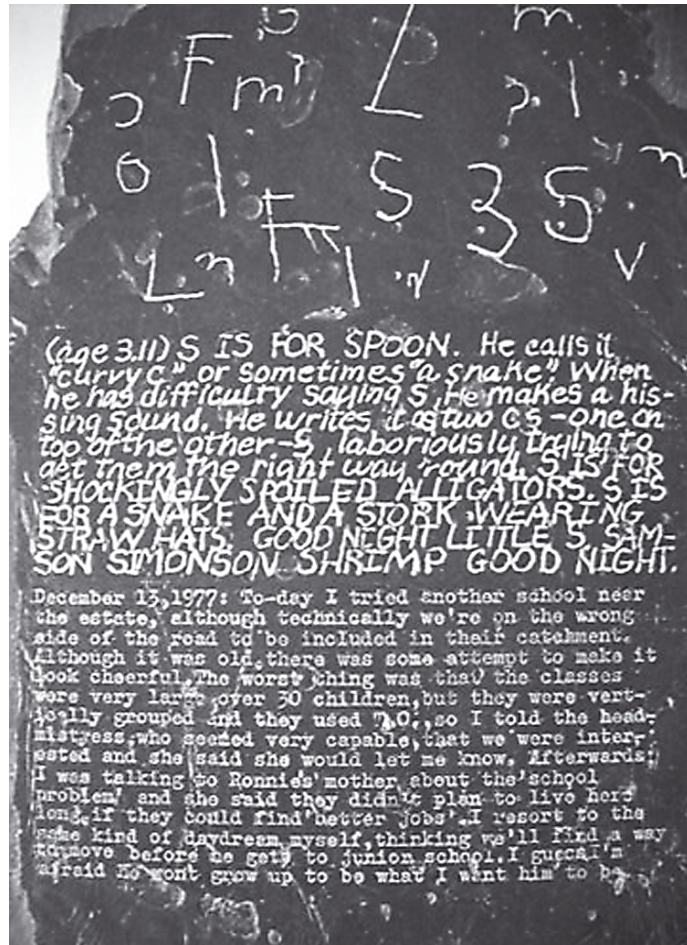 F m ? L m
? 1
0 1 F S 3 S m
L n 1 v v
(age 3.11) S IS FOR SPOON. He calls it
"curvy c" or sometimes "a snake". When
he has difficulty saying S, He makes a his-
sing sound. He writes it as two Cs – one on
top of the other – S, laboriously trying to
get them the right way 'round. S IS FOR
SHOCKINGLY SPOILED ALLIGATORS. S IS
FOR A SNAKE AND A STORK WEARING
STRAW HATS. GOOD NIGHT LITTLE S. SAM-
SON SIMONSON SHRIMP GOOD NIGHT.
December 13,1977: To-day I tried another school near
the estate, although technically we're on the wrong
side of the road to be included in their catchment.
Although it was old,there was some attempt to make it
look cheerful.The worst thing was that the classes
were very large,over 30 children,but they were vert-
ically grouped and they used T.O.,so I told the head-
mistress,who seemed very capable,that we were inter-
ested and she said she would let me know. Afterwards,
I was talking to Ronnie's mother about the'school
problem' and she said they didn't plan to live here
long,if they could find'better jobs'.I resort to the
same kind of daydream myself,thinking we'll find a way
to move before he gets to junior school.I guess I'm
afraid he wont grow up to be what I want him to be